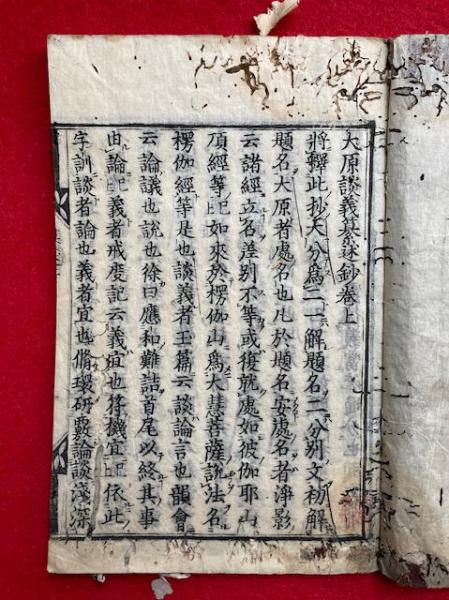 大原談義纂述鈔卷上
將釋此抄大分為二一解題名二分別文初解
題名大原者處名也凡於題名安處名者淨影
云諸經立名差別不等或復就處如彼伽耶山
頂經等記如來於楞伽山為大慧菩薩說法名
楞伽經等是也談義者玉篇云談論言也韻會
云論議也說也徐曰應和難詰首尾以終其事
由論記義者戒度記云義宜也將機宜記依此
字訓談者論也義者宜也循環研覈論談淺深